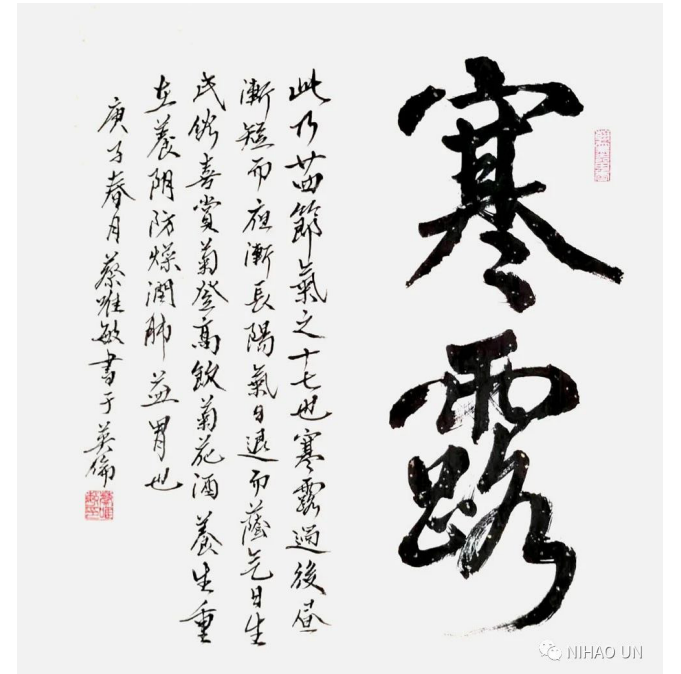 寒露
此乃廿四節氣之十七也寒露過後昼
漸短而夜漸長陽氣日退而蔭气日生
民俗喜賞菊登高飲菊花酒養生重
在養阴防燥潤肺益胃也
庚子春月蔡唯敏書于英倫
NIHAO UN